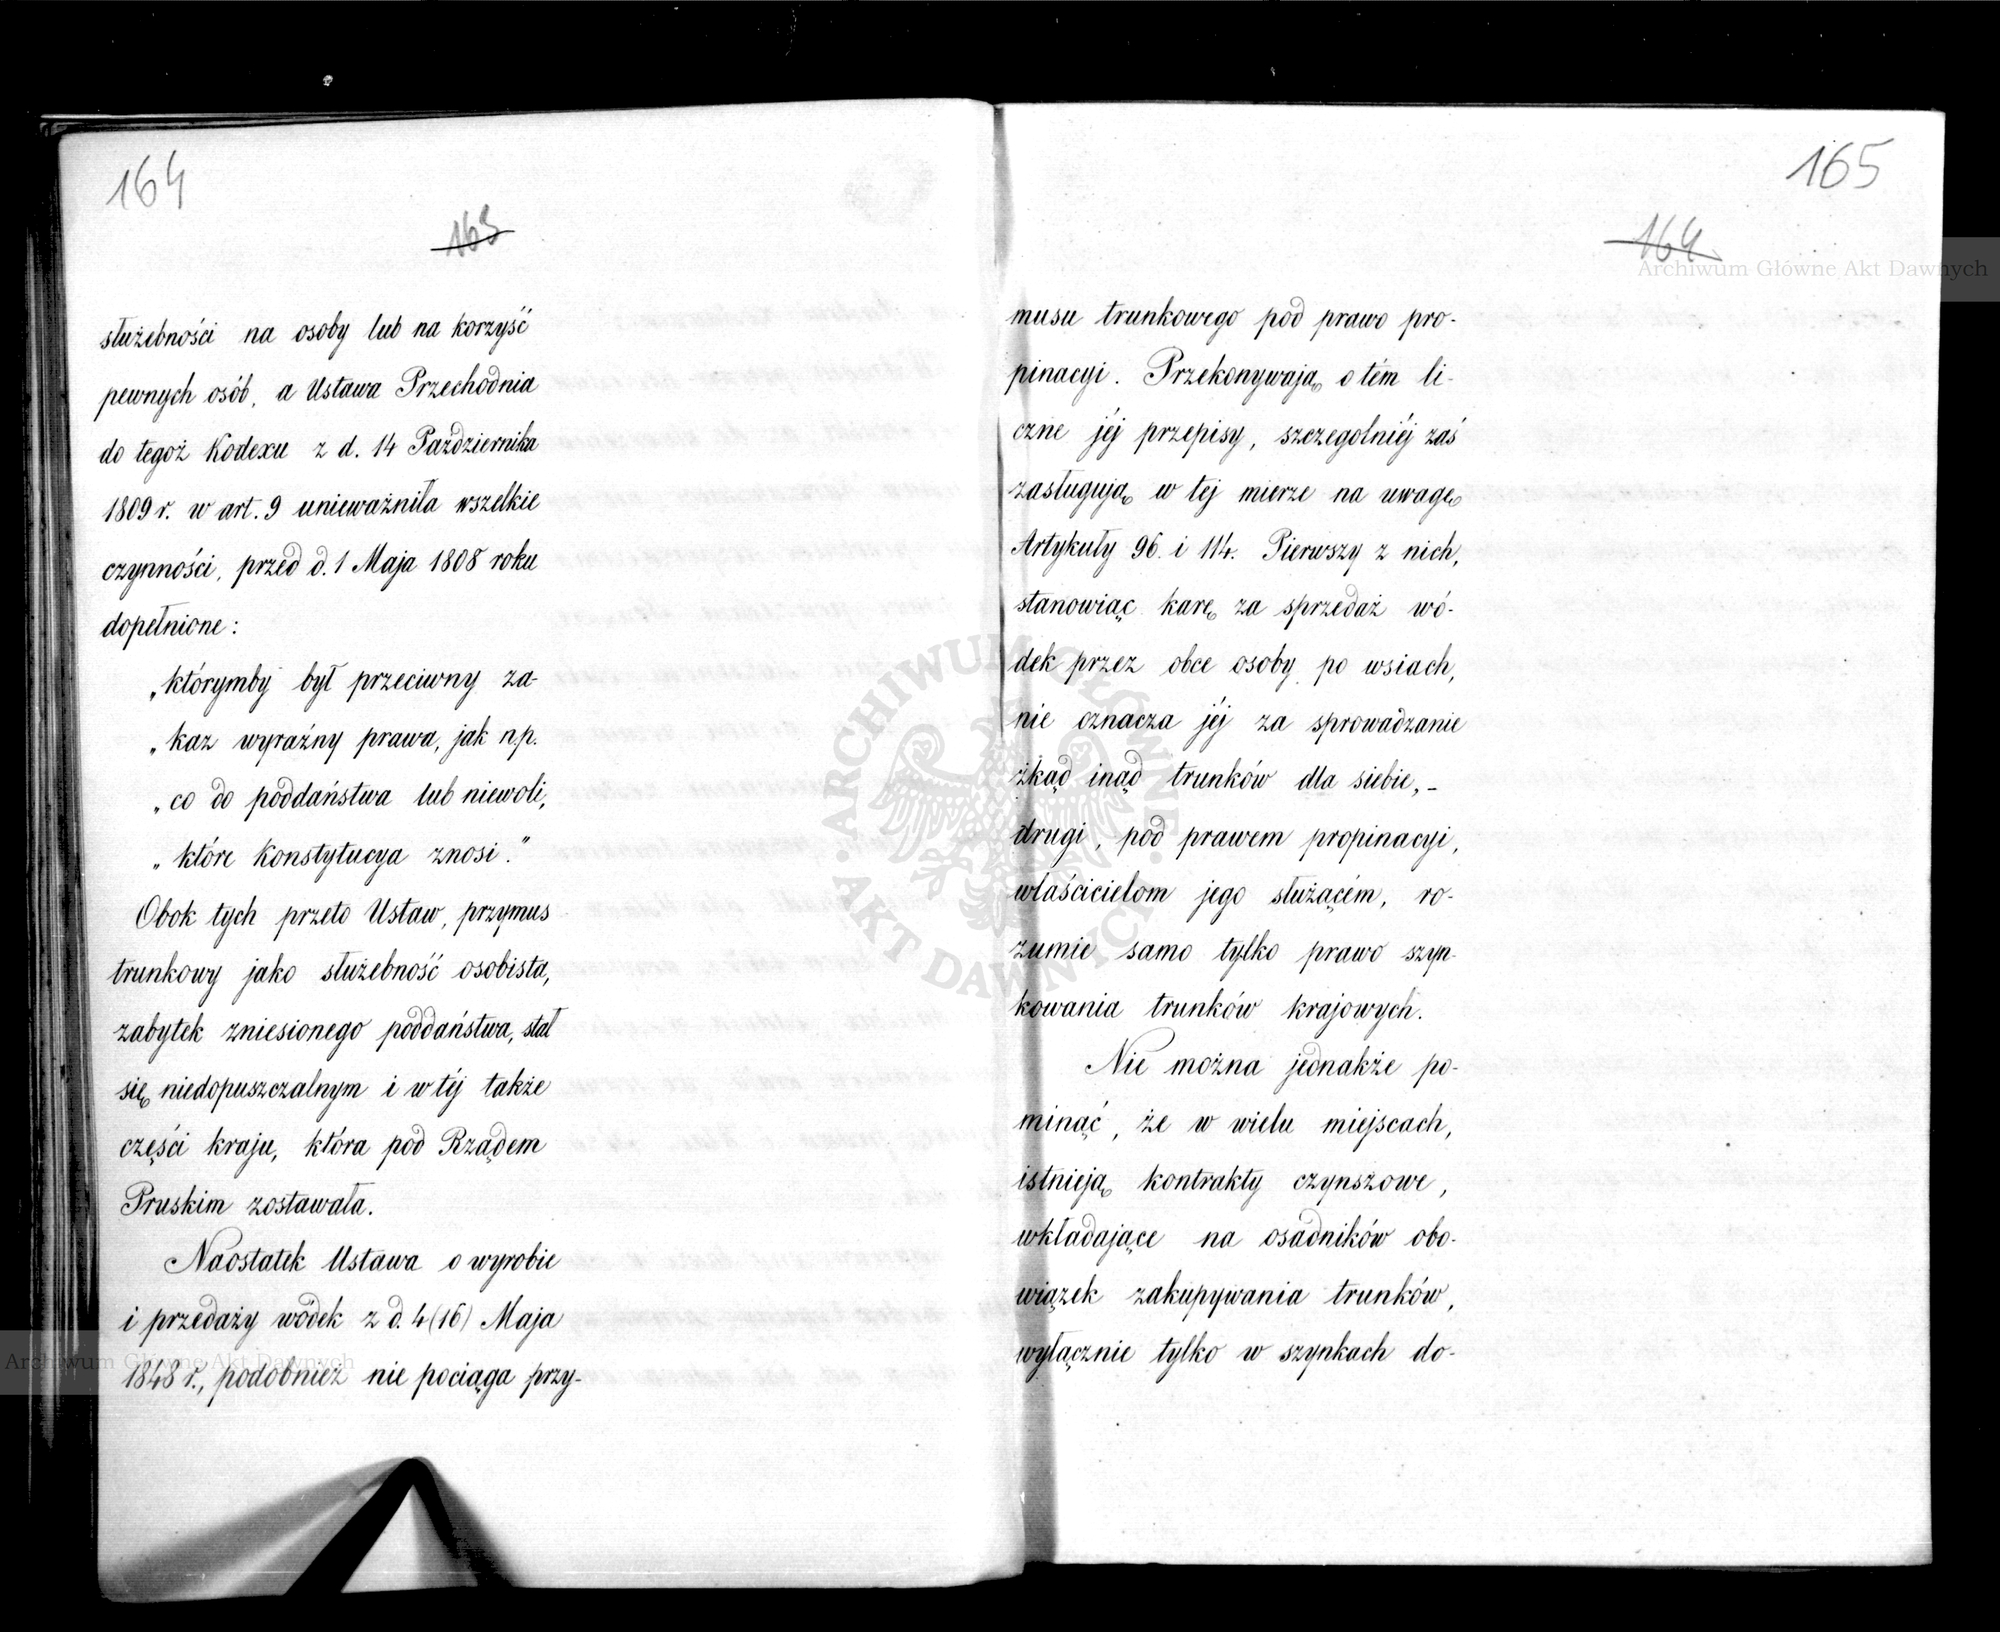 164
163
służebności na osoby lub na korzyść
pewnych osób, a Ustawa Przechodnia
do tegoż Kodexu z d. 14 Października
1809 r. w art. 9 unieważniła wszelkie
czynności, przed d. 1 Maja 1808 roku
dopełnione:
„którymby był przeciwny za-
„kaz wyraźny prawa, jak n.p.
„co do poddaństwa lub niewoli,
„które Konstytucya znosi."
Obok tych przeto Ustaw, przymus
trunkowy jako służebność osobista,
zabytek zniesionego poddaństwa, stał
się niedopuszczalnym i w téj także
części kraju, która pod Rządem
Pruskim zostawała.
Naostatek Ustawa o wyrobie
i przedaży wódek z d. 4 (16) Maja
1848 r., podobnież nie pociąga przy-
165
164
musu trunkowego pod prawo pro-
pinacyi. Przekonywają o tém li-
czne jéj przepisy, szczegolniéj zaś
zasługują w tej mierze na uwagę
Artykuły 96. i 114. Pierwszy z nich,
stanowiąc karę za sprzedaż wó-
dek przez obce osoby po wsiach,
nie oznacza jéj za sprowadzanie
zkąd inąd trunków dla siebie,-
drugi, pod prawem propinacyi,
właścicielom jego służącém, ro-
zumie samo tylko prawo szyn-
kowania trunków krajowych.
Nie można jednakże po-
minąć, że w wielu miejscach,
istnieją kontrakty czynszowe,
wkładające na osadników obo-
wiązek zakupywania trunków,
wyłącznie tylko w szynkach do-
Archiwum Główne Akt Dawnych
Archiwum Główne Akt Dawnych
ARCHIWUM GŁÓWNE AKT DAWNYCH